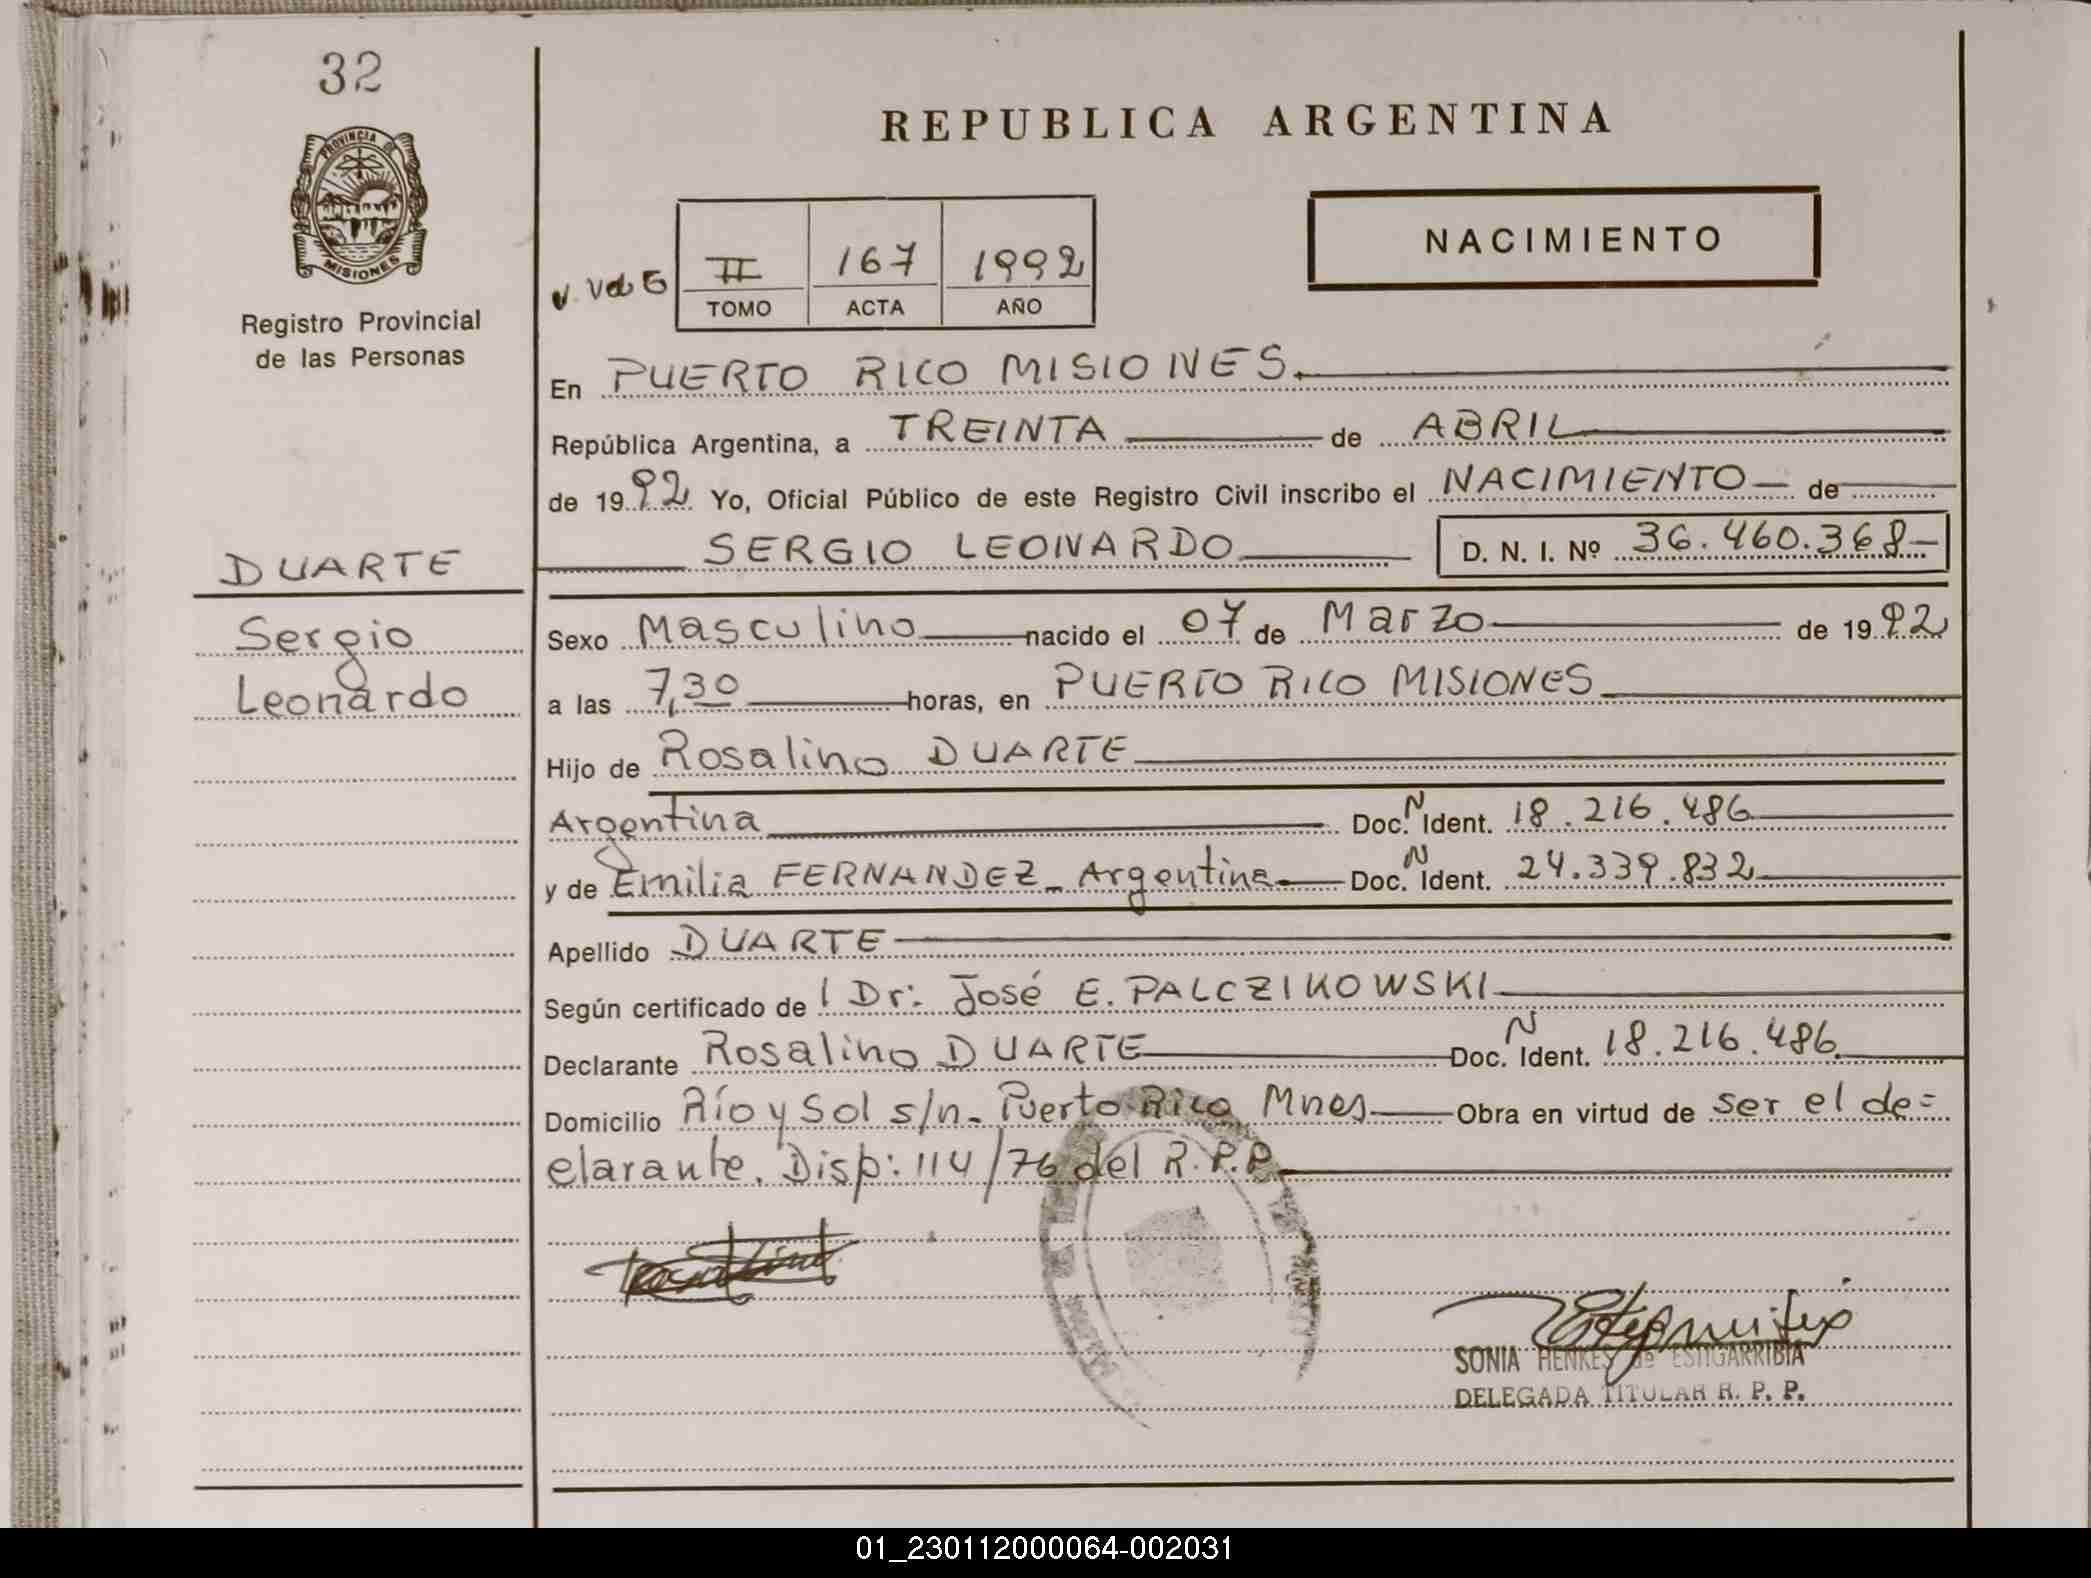 32
REPUBLICA ARGENTINA
PROVINCIA DE
MISIONES
Registro Provincial
de las Personas
NACIMIENTO
II 167 1992
TOMO ACTA AÑO
En PUERTO RICO MISIONES.
República Argentina, a TREINTA de ABRIL
de 1992 Yo, Oficial Público de este Registro Civil inscribo el NACIMIENTO de
SERGIO LEONARDO D. N. I. Nº 36.460.368
DUARTE
Sergio
Leonardo
Sexo Masculino nacido el 07 de Marzo de 1992
a las 7,30 horas, en PUERTO RICO MISIONES
Hijo de Rosalino DUARTE
Argentina Doc. N Ident. 18.216.486
y de Emilia FERNANDEZ - Argentina Doc. N Ident. 24.339.832
Apellido DUARTE
Según certificado de l Dr: José E. PALCZIKOWSKI
Declarante Rosalino DUARTE Doc. N Ident. 18.216.486
Domicilio Río y Sol s/n - Puerto Rico Mnes Obra en virtud de ser el de=
clarante. Disp: 114/76 del R.P.P.
SONIA HENKES de ESTIGARRIBIA
DELEGADA TITULAR R. P. P.
01_230112000064-002031